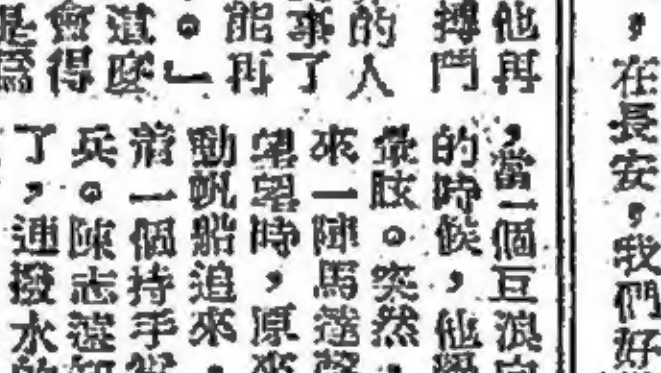 ，在長安，我們好
他再
搏鬥
的人
事了
能再
。」
這麼
會得
是為
，當一個巨浪向
的時候，他
眩。突然，
來一陣馬達聲
望望時，原來
動帆船追來，
一個持手
兵。陳志遠
了，連撥水的